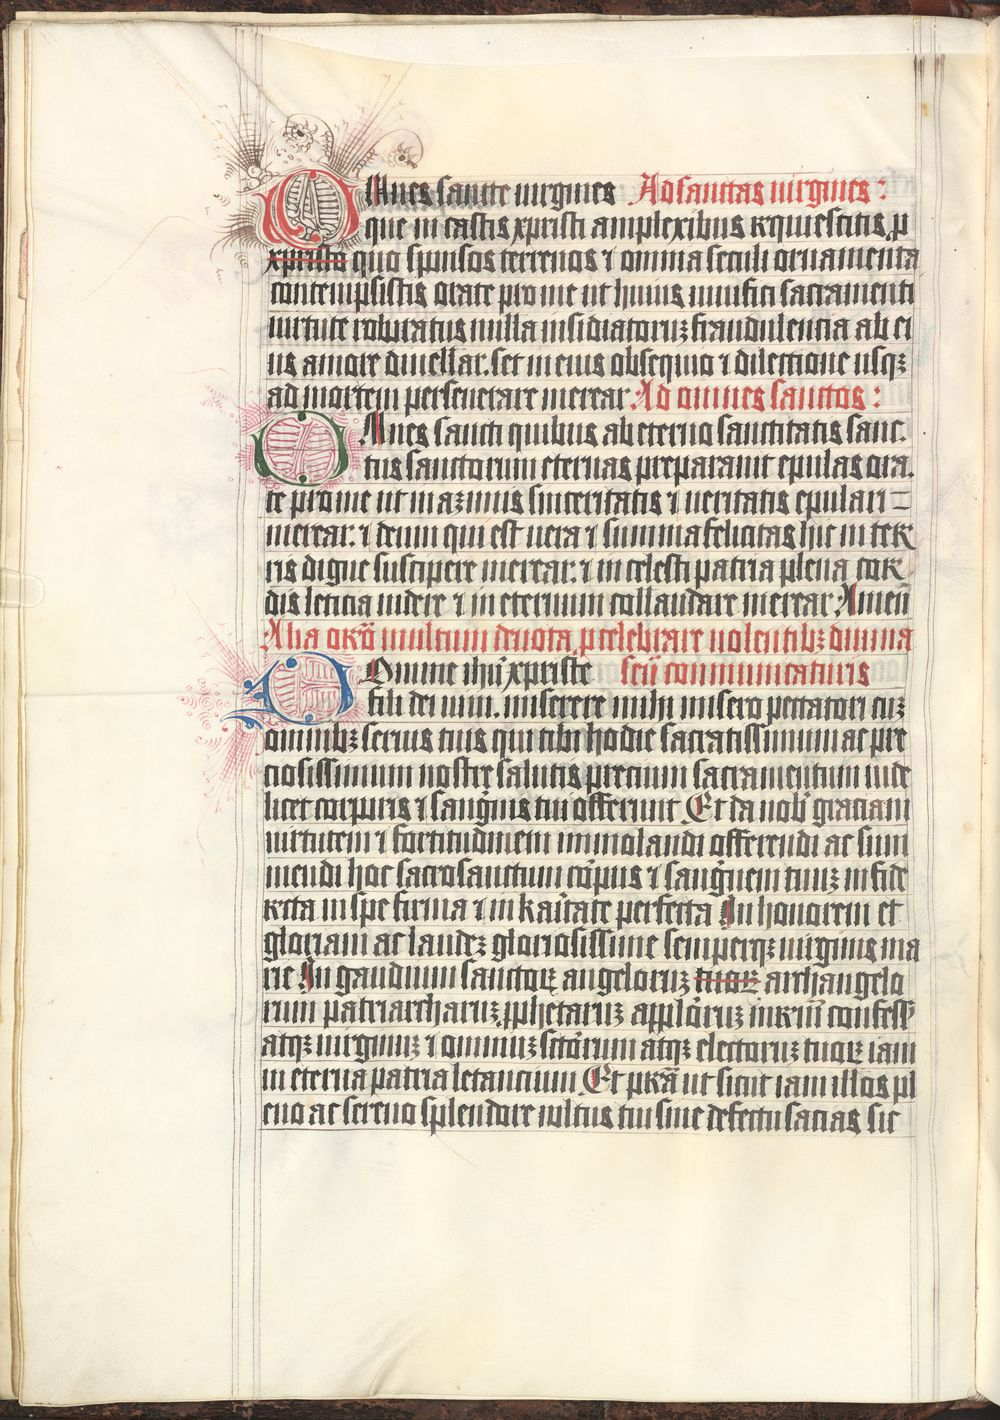 OMnes sancte uirgines Ad sanctas uirgines:
que in castis xpristi amplexibus requiescitis. p
xpristo quo sponsos terrenos ⁊ omnia seculi ornamenta
contempsistis orate pro me ut huius munifici sacramenti
uirtute roboratus nulla insidiatoruꝫ fraudulentia ab ei
us amore diuellar. set in eius obsequio ⁊ dilectione usqꝫ
ad mortem perseuerare merear. Ad omnes sanctos:
OMnes sancti quibus ab eterno sanctitatis sanc.
tus sanctorum eternas preparauit epulas ora.
te pro me ut in aꝫimis sinceritatis ⁊ ueritatis epulari
merear. ⁊ deum qui est uera ⁊ summa felicitas hic in ter
ris digne suscipere merear. ⁊ in celesti patria plena cor
dis leticia uidere ⁊ in eternum collaudare merear. Amen̄
Alia orō multum deuota. p celebrare uolentibꝫ diuina
DOmine ihū xpriste seū communicaturis
fili dei uiui. miserere mihi misero peccatori cuꝫ
omnibꝫ seruis tuis qui tibi hodie sacratissimum ac pre
ciosissimum nostre salutis precium sacramentum uide
licet corporis ⁊ sang̃nis tui offerunt Et da nob̃ graciam
uirtutem ⁊ fortitudinem immolandi offerendi ac sum
mendi hoc sacrosanctum cōpus ⁊ sang̃nem tuuꝫ in fide
recta in spe firma ⁊ in karitate perfecta In honorem et
gloriam ac laudeꝫ gloriosissime semperqꝫ uirginis ma
rie In gaudium sanctoꝝ angeloruꝫ tuoꝝ archangelo
rum patriarcharuꝫ. pphetaruꝫ appl̃oruꝫ m̃rm̃ confess̃
atqꝫ uirginuꝫ ⁊ omniuꝫ sc̃torum atqꝫ electoruꝫ tuoꝝ iam
in eterna patria letancium Et prā ut sicut iam illos pl
eno ac sereno splendore uultus tui sine defectu sacias sic